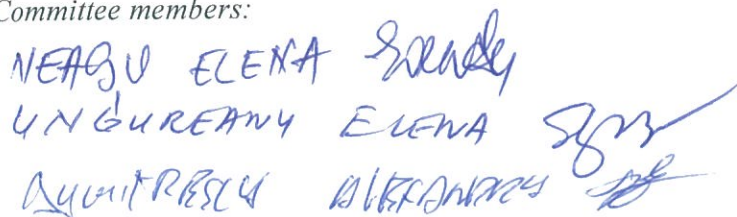 Committee members:
NEAGU ELENA
UNGUREANU ELENA
DUMITRESCU ALEXANDRU